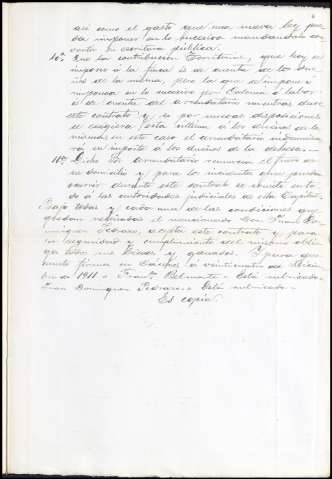 así como el gasto que una nueva ley pue
da imponer en lo sucesivo mandándolo con
vertir en escritura pública.
10ª. Que la contribución Territorial, que hoy se
impone á la finca es de cuenta de los due
ños de la misma, pero la que se impone ó
imponga en lo sucesivo por Colonia ó labor
es de cuenta del arrendatario mientras dure
este contrato y si por nuevas disposiciones
se exigiera esta última á los dueños de la
misma, en este caso el arrendatario
su importe á los dueños de la dehesa.
11ª. Dicho Sr. arrendatario renuncia el fuero de
su domicilio y para los incidentes que puedan
ocurrir durante este contrato se somete en to
do á las autoridades judiciales de esta Capital.
Bajo todas y cada una de las condiciones que
quedan reseñadas el mencionado Don Juan Do
minguez Pedrazo, acepta este contrato y para
su seguridad y cumplimiento del mismo obli
ga todos sus bienes y ganados. Y para que
conste firma en Cáceres á veinticuatro de Diciem
bre de 1911 - Franco Belmonte - Está rubricado.
Juan Dominguez Pedrazo - Está rubricado -
Es copia